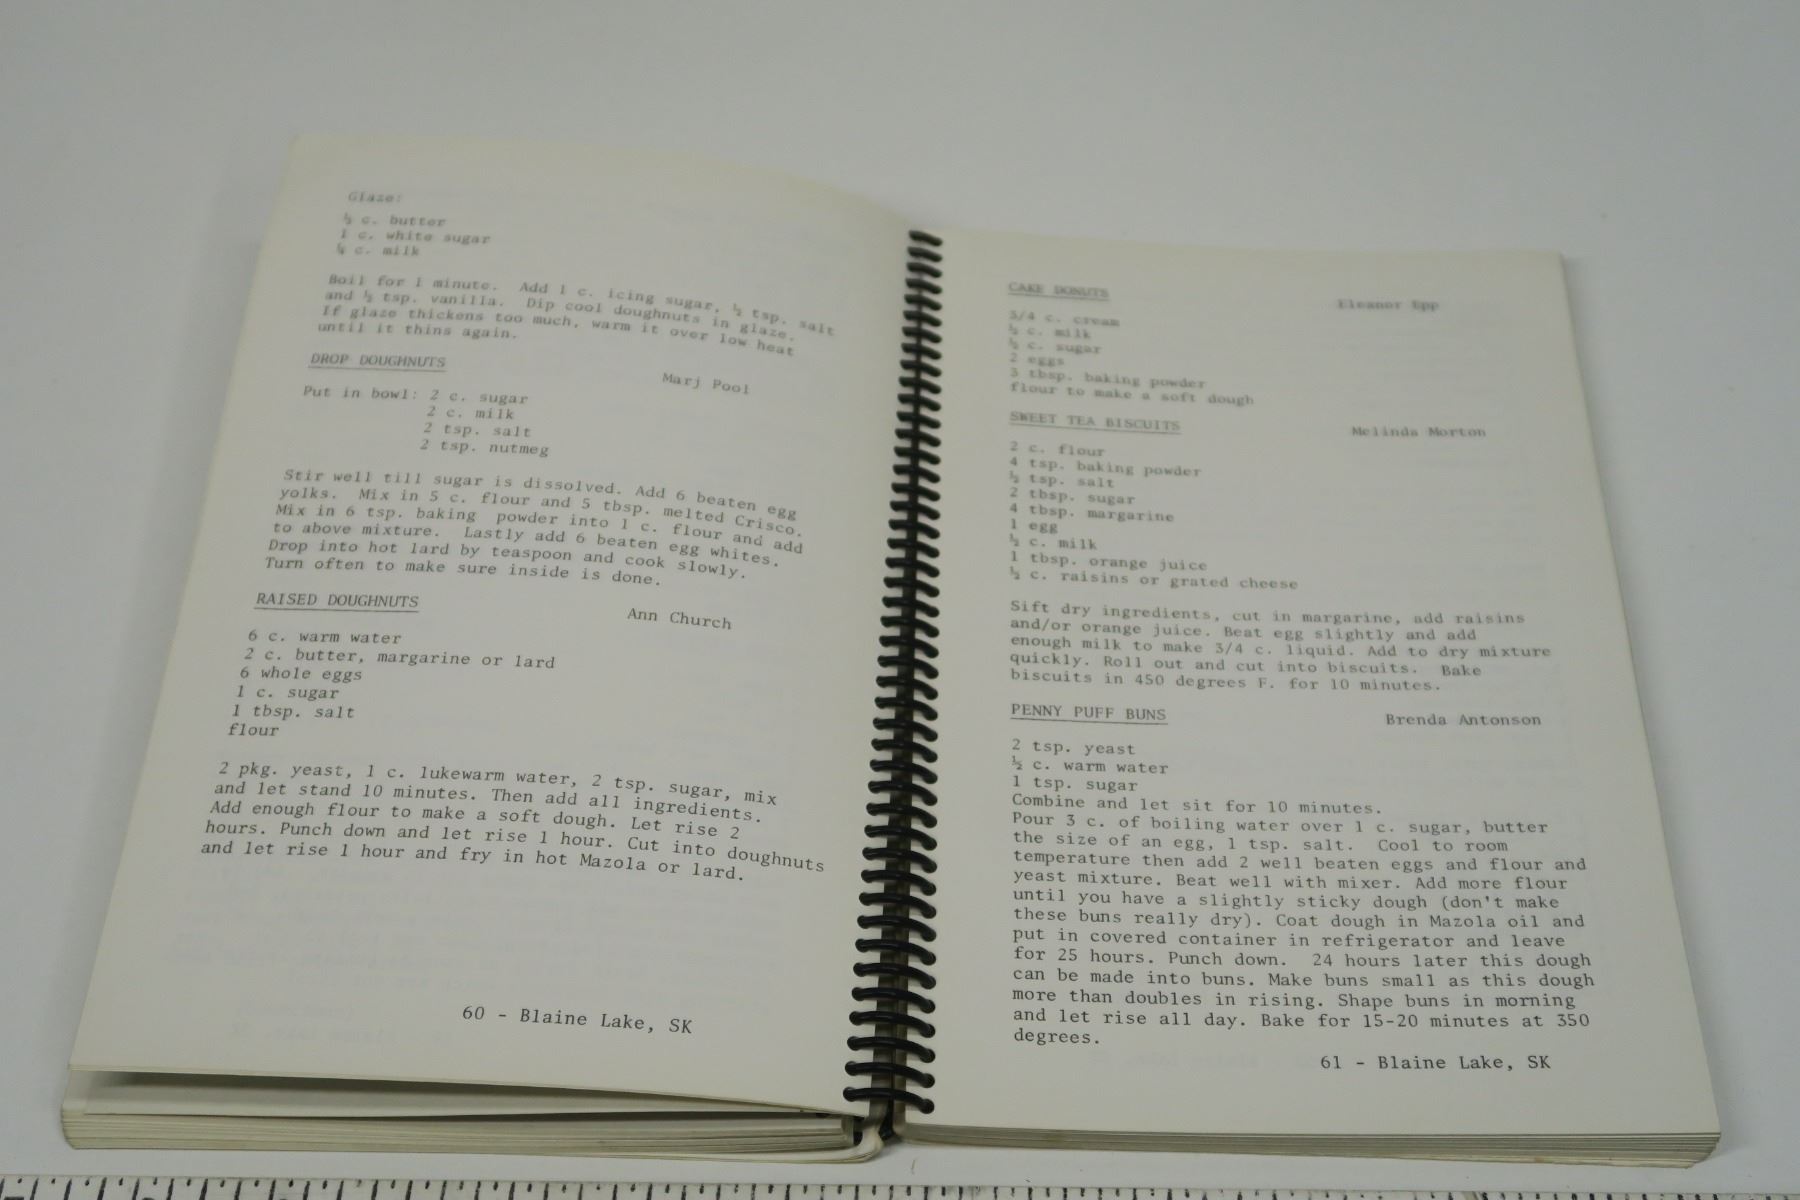 Glaze:
½ c. butter
1 c. white sugar
¼ c. milk
Boil for 1 minute. Add 1 c. icing sugar, ½ tsp. salt
and ½ tsp. vanilla. Dip cool doughnuts in glaze.
If glaze thickens too much, warm it over low heat
until it thins again.
DROP DOUGHNUTS
Marj Pool
Put in bowl: 2 c. sugar
2 c. milk
2 tsp. salt
2 tsp. nutmeg
Stir well till sugar is dissolved. Add 6 beaten egg
yolks. Mix in 5 c. flour and 5 tbsp. melted Crisco.
Mix in 6 tsp. baking powder into 1 c. flour and add
to above mixture. Lastly add 6 beaten egg whites.
Drop into hot lard by teaspoon and cook slowly.
Turn often to make sure inside is done.
RAISED DOUGHNUTS
Ann Church
6 c. warm water
2 c. butter, margarine or lard
6 whole eggs
1 c. sugar
1 tbsp. salt
flour
2 pkg. yeast, 1 c. lukewarm water, 2 tsp. sugar, mix
and let stand 10 minutes. Then add all ingredients.
Add enough flour to make a soft dough. Let rise 2
hours. Punch down and let rise 1 hour. Cut into doughnuts
and let rise 1 hour and fry in hot Mazola or lard.
60 - Blaine Lake, SK
CAKE DONUTS
Eleanor Epp
3/4 c. cream
½ c. milk
½ c. sugar
2 eggs
3 tbsp. baking powder
flour to make a soft dough
SWEET TEA BISCUITS
Melinda Morton
2 c. flour
4 tsp. baking powder
½ tsp. salt
2 tbsp. sugar
4 tbsp. margarine
1 egg
½ c. milk
1 tbsp. orange juice
½ c. raisins or grated cheese
Sift dry ingredients, cut in margarine, add raisins
and/or orange juice. Beat egg slightly and add
enough milk to make 3/4 c. liquid. Add to dry mixture
quickly. Roll out and cut into biscuits. Bake
biscuits in 450 degrees F. for 10 minutes.
PENNY PUFF BUNS
Brenda Antonson
2 tsp. yeast
½ c. warm water
1 tsp. sugar
Combine and let sit for 10 minutes.
Pour 3 c. of boiling water over 1 c. sugar, butter
the size of an egg, 1 tsp. salt. Cool to room
temperature then add 2 well beaten eggs and flour and
yeast mixture. Beat well with mixer. Add more flour
until you have a slightly sticky dough (don't make
these buns really dry). Coat dough in Mazola oil and
put in covered container in refrigerator and leave
for 25 hours. Punch down. 24 hours later this dough
can be made into buns. Make buns small as this dough
more than doubles in rising. Shape buns in morning
and let rise all day. Bake for 15-20 minutes at 350
degrees.
61 - Blaine Lake, SK